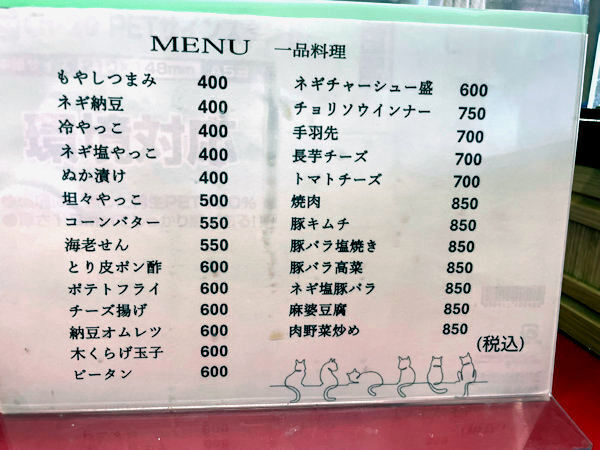 MENU 一品料理
もやしつまみ 400
ネギ納豆 400
冷やっこ 400
ネギ塩やっこ 400
ぬか漬け 400
坦々やっこ 500
コーンバター 550
海老せん 550
とり皮ポン酢 600
ポテトフライ 600
チーズ揚げ 600
納豆オムレツ 600
木くらげ玉子 600
ピータン 600
ネギチャーシュー盛 600
チョリソウインナー 750
手羽先 700
長芋チーズ 700
トマトチーズ 700
焼肉 850
豚キムチ 850
豚バラ塩焼き 850
豚バラ高菜 850
ネギ塩豚バラ 850
麻婆豆腐 850
肉野菜炒め 850
(税込)